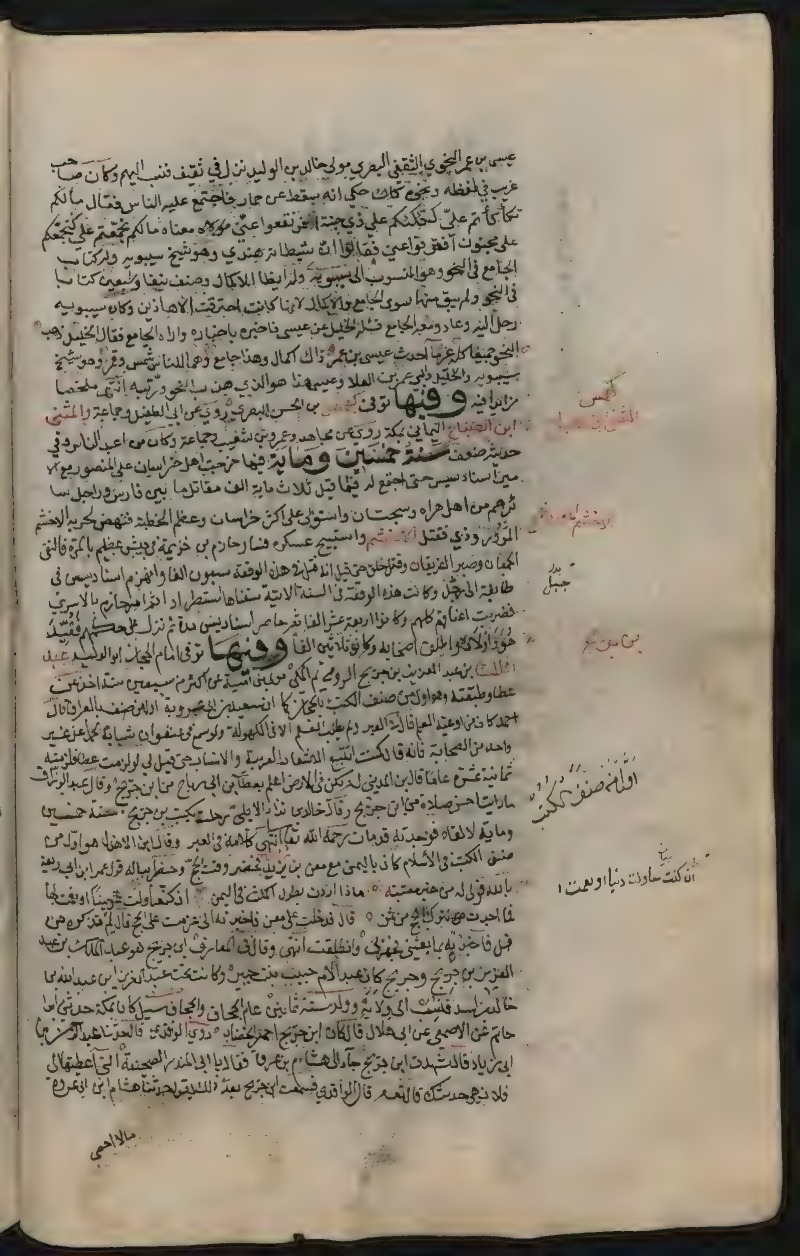 عيسى بن عمر النحوي الثقفي البصري مولى خالد بن الوليد نزل في ثقيف فنسب اليهم وكان صاحب
غريب في لفظه ونحوه حكي انه سقط عن حمار فاجتمع عليه الناس فقال مالكم
تكأكأتم علي كتكأكئكم على ذي جنة افرنقعوا عني معناه مالكم تجمعتم علي كتجمعكم
على مجنون افرنقعوا عني فقالوا ان شيطانه هندي وهو شيخ سيبويه وله كتاب
الجامع في النحو وهو المنسوب الى سيبويه وله ايضا الاكمال وصنف نيفا وسبعين كتابا
في النحو ولم يبق منها سوى الجامع والاكمال لانها كانت احترقت الا هاذين وكان سيبويه
رحل اليه وعاد ومعه الجامع فسئله الخليل عن عيسى فاخبره باخباره واراه الجامع فقال الخليل ذهب
النحو جميعا كله غير ما احدث عيسى بن عمر ذاك اكمال وهذا جامع وهما للناس شمس وقمر وهو شيخ
سيبويه والخليل وابي عمرو بن العلا وعيسى هذا هو الذي هذب النحو ورتبه انتهى ملخصا
وفيها توفى بن الحسن البصري روى عن ابي الطفيل وجماعة والمثنى
ابن الصباح اليماني بمكة روى عن مجاهد وعمرو بن شعيب وجماعة وكان من اعبد الناس وفي
حديثه ضعف سنة خمسين وماية فيها خرجت اهل خراسان على المنصور مع الا
مير استاد سيس حتى اجتمع له فيما قيل ثلاث ماية الف مقاتل ما بين فارس وراجل سا
ئرهم من اهل هراه وسجستان واستولى على اكثر خراسان وعظم الخطب فنهض لحربه الاخشم
المروزوذي فقتل الاخشم واستبيح عسكره فسار حازم بن خزيمة في جيش عظيم بالمرة فالتقى
الجمعان وصبر الفريقان وقتل خلق حتى قيل انه قتل في هذه الوقعة سبعون الفا وانهزم استاد سيس في
طايفة الى جبل وكانت هذه الوقعة في السنة الاتية سقناها استطرادا ثم امر حازم بالاسرى
فضربت اعناقهم كلهم وكانوا اربعة عشر الفا ثم حاصر استاد سيس مدة ثم نزل على حكمهم فقيد
هو واولاده واطلق اصحابه وكانوا ثلاثين الفا وفيها توفى امام الحجاز ابو الوليد عبد
الملك بن عبد العزيز بن جريج الرومي ثم المكي مولى بني امية عن اكثر من سبعين سنة اخذ عن
عطا وطبقته وهو اول من صنف الكتب بالحجاز كما ان سعيد بن ابي عروبة اول من صنف بالعراق قال
احمد كان من اوعية العلم قال في العبر ولم يطلب العلم الا في الكهولة ولو سمع في عنفوان شبابه لحمل عن غير
واحد من الصحابة فانه قال كنت اتتبع الاشعار العربية والانساب حتى قيل لي لو لزمت عطا فلزمته
ثمانية عشر عاما قال ابن المديني لم يكن في الارض اعلم بعطا بن ابي رباح من ابن جريج وقال عبد الرزاق
ما رايت احسن صلاة من ابن جريج وقال خالد بن نزار الايلي رحلت بكتب بن جريج سنة خمسين
وماية لالقاه فوجدته قد مات رحمه الله تعالى انتهى كلامه في العبر وقال ابن الاهدل هو اول من
صنف الكتب في الاسلام كان باليمن مع معن بن زيد فحضر وقت الحج وخطر بباله قول عمر ابن ابي ربيعة
بالله قولي له من غير معتبة ماذا اردت بطول المكث في اليمن ان كنت حاولت
فما اخذت بترك الحج من ثمن قال فدخلت على معن فاخبرته اني عزمت على الحج فقال لم تذكره من
قبل فاخبرته بما بعثني فجهزني وانطلقت انتهى وقال في المعارف ابن جريج هو عبد الملك بن عبد
العزيز بن جريج وجريج كان عبدا لام حبيب بنت جبير وكانت تحت عبد العزيز ابن عبد الله بن
خالد بن اسد فنسب الى ولايه وولد سنة ثمانين عام الجحاف والجحاف سيل كان بمكة حدثني ابو
حاتم عن الاصمعي عن ابي هلال قال كان ابن جريج احمر الخضاب روى الواقدي قال حدثنا عبد الرحمن بن
ابي زياد قال شهدت ابن جريج جاء الى هشام بن عروة فقال يا ابا المنذر الصحيفة التي اعطيتها الى
فلان هي حديثك قال نعم قال الواقدي فسمعت ابن جريج بعد ذلك يقول حدثنا هشام ابن ابي عروة
مالا احصي
كهمس
بدر
جبل
اول من صنف الكتب
بيان
ان كنت حاولت دنيا او نعمت